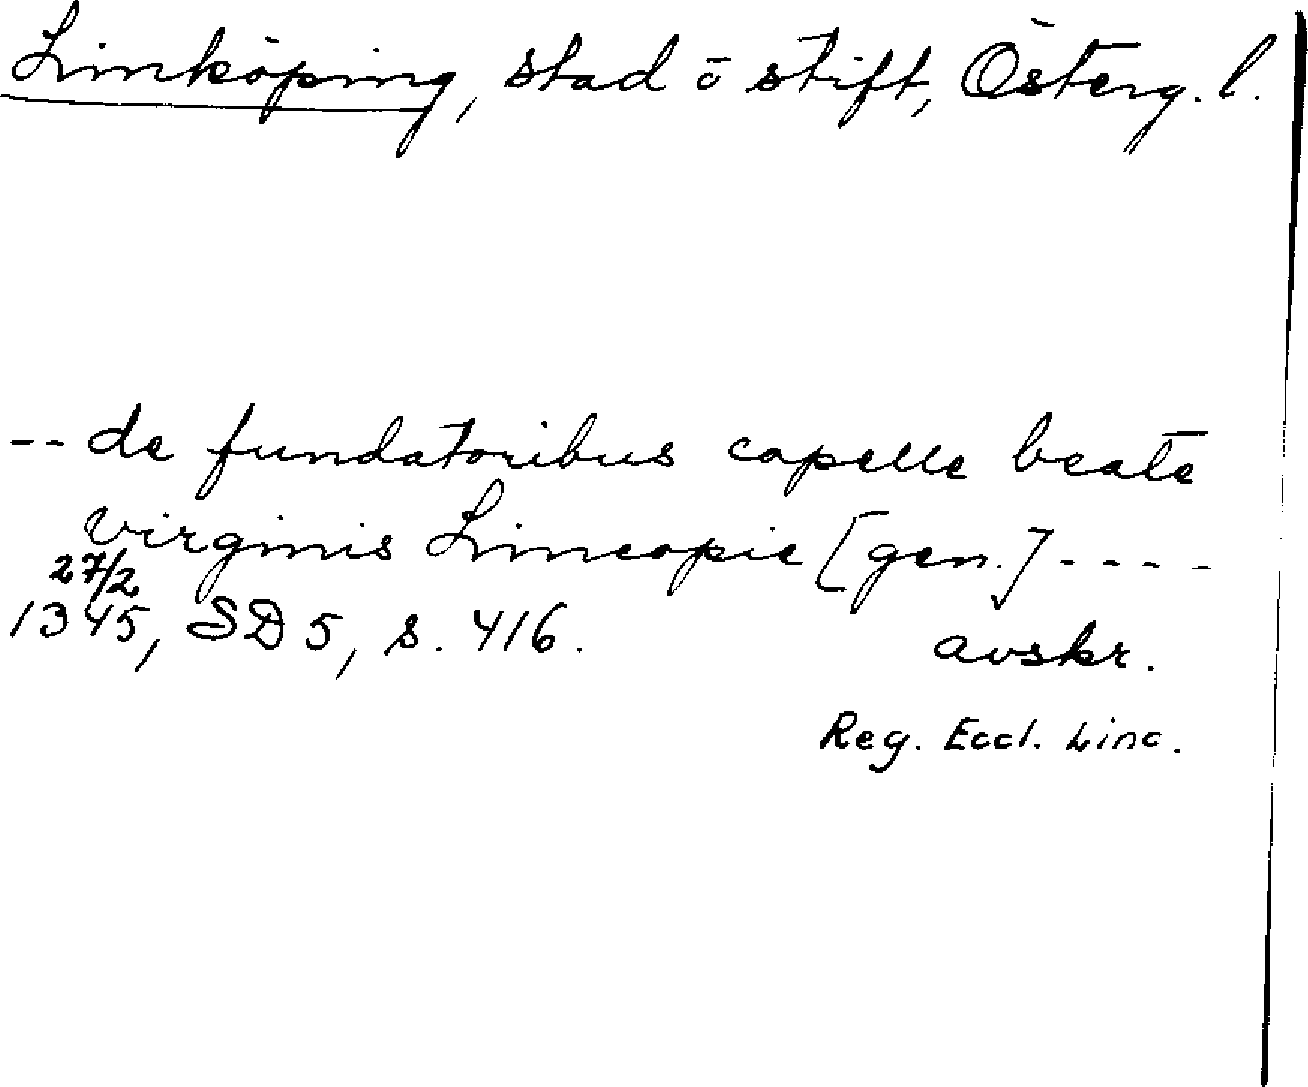 Linköping, stad o stift, Österg. l.
-- de fundatoribus capelle beate
virginis Lincopie [gen.] ----
27/2
1345, SD 5, s. 416.
avskr.
Reg. Eccl. Linc.